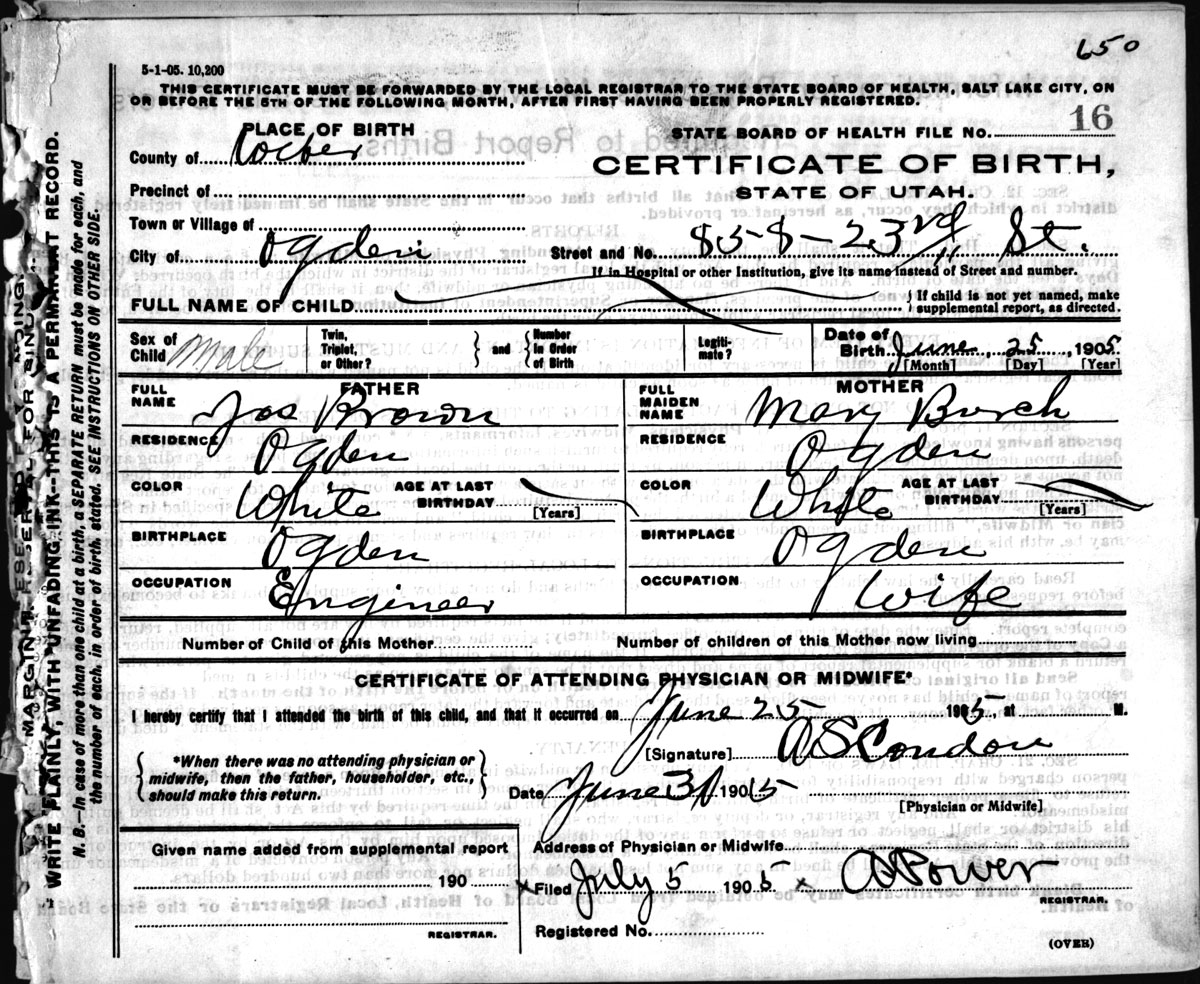 650
5-1-05. 10,200
THIS CERTIFICATE MUST BE FORWARDED BY THE LOCAL REGISTRAR TO THE STATE BOARD OF HEALTH, SALT LAKE CITY, ON
OR BEFORE THE 5TH OF THE FOLLOWING MONTH, AFTER FIRST HAVING BEEN PROPERLY REGISTERED.
PLACE OF BIRTH
STATE BOARD OF HEALTH FILE No. 16
County of Weber
CERTIFICATE OF BIRTH,
Precinct of
STATE OF UTAH.
Town or Village of
City of Ogden Street and No. 858-23rd St.
If in Hospital or other Institution, give its name instead of Street and number.
FULL NAME OF CHILD } If child is not yet named, make supplemental report, as directed.
Sex of Child Male Twin, Triplet, or Other? } and { Number in Order of Birth Legiti-mate? Date of Birth June 25, 1905.
[Month] [Day] [Year]
FATHER
FULL NAME Jos Brown
RESIDENCE Ogden
COLOR White AGE AT LAST BIRTHDAY
[Years]
BIRTHPLACE Ogden
OCCUPATION Engineer
MOTHER
FULL MAIDEN NAME Mary Burch
RESIDENCE Ogden
COLOR White AGE AT LAST BIRTHDAY
[Years]
BIRTHPLACE Ogden
OCCUPATION Wife
Number of Child of this Mother Number of children of this Mother now living
CERTIFICATE OF ATTENDING PHYSICIAN OR MIDWIFE*
I hereby certify that I attended the birth of this child, and that it occurred on June 25 1905, at M.
{ *When there was no attending physician or midwife, then the father, householder, etc., should make this return. }
[Signature] A S Condon
Date June 31 1905
[Physician or Midwife]
Given name added from supplemental report
Address of Physician or Midwife
190
x Filed July 5 1905 x
REGISTRAR.
REGISTRAR.
Registered No.
(OVER)
MARGIN RESERVED FOR BINDING.
WRITE PLAINLY, WITH UNFADING INK--THIS IS A PERMANENT RECORD.
N. B.—In case of more than one child at a birth, a SEPARATE RETURN must be made for each, and
the number of each, in order of birth, stated. SEE INSTRUCTIONS ON OTHER SIDE.